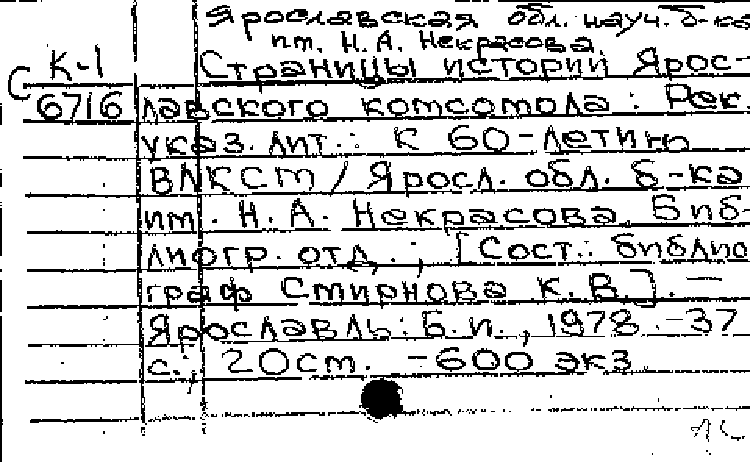 Ярославская обл. науч. б-ка
им. Н. А. Некрасова.
К-1 Страницы истории Яро-
С 6716 лавского комсомола: Рек.
указ. лит.: К 60-летию
ВЛКСМ / Яросл. обл. б-ка
им. Н. А. Некрасова. Биб-
лиогр. отд.; [Сост.: библио
граф Смирнова К. В.]. —
Ярославль: Б. и., 1978. - 37
с.; 20 см. - 600 экз.